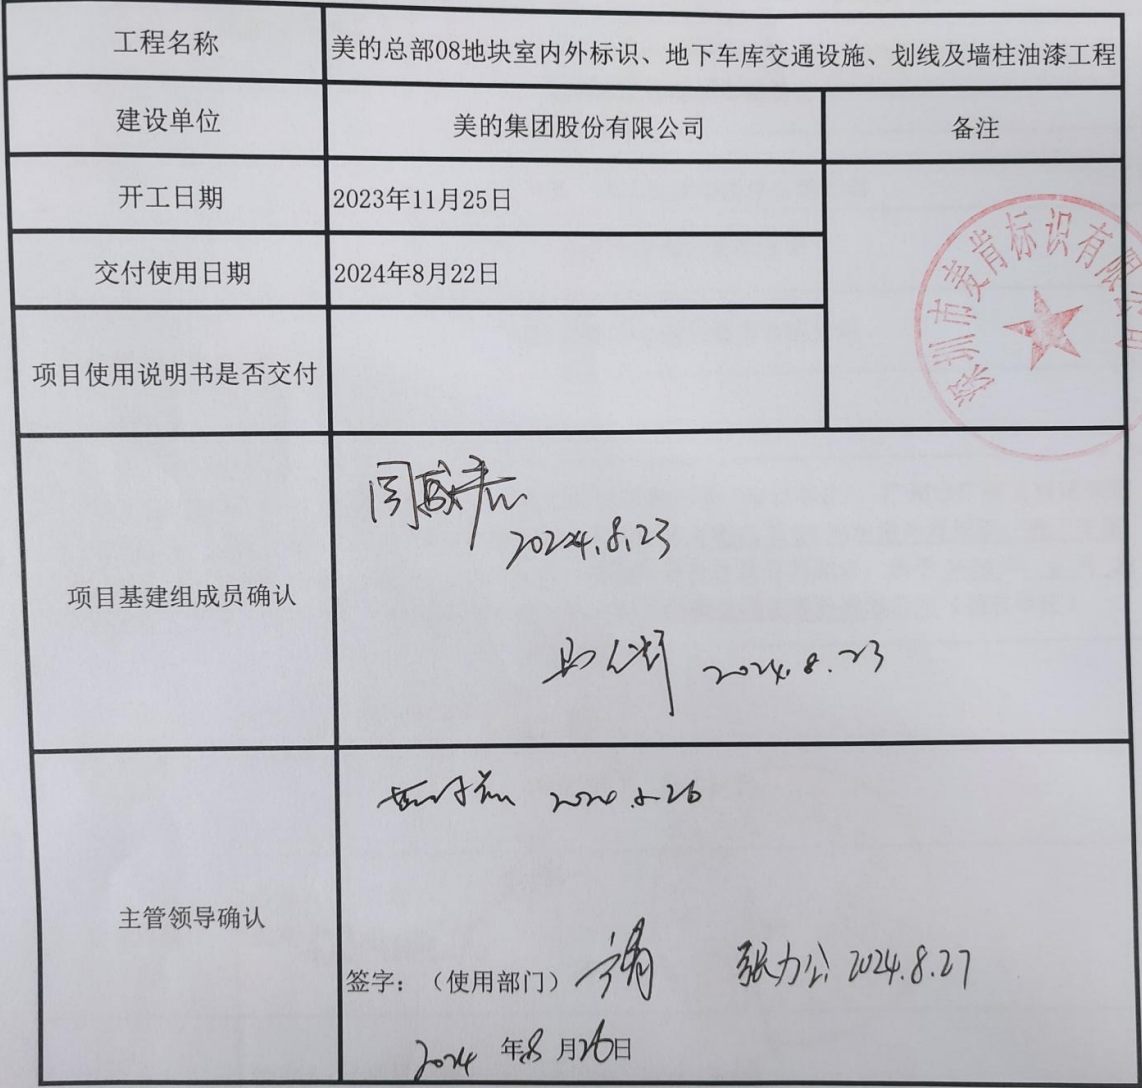 工程名称
美的总部08地块室内外标识、地下车库交通设施、划线及墙柱油漆工程
建设单位
美的集团股份有限公司
备注
开工日期
2023年11月25日
交付使用日期
2024年8月22日
深圳市麦肯标识有限公司
项目使用说明书是否交付
项目基建组成员确认
2024.8.23
2024.8.23
主管领导确认
签字：（使用部门）
张力公 2024.8.27
2024 年8 月26日